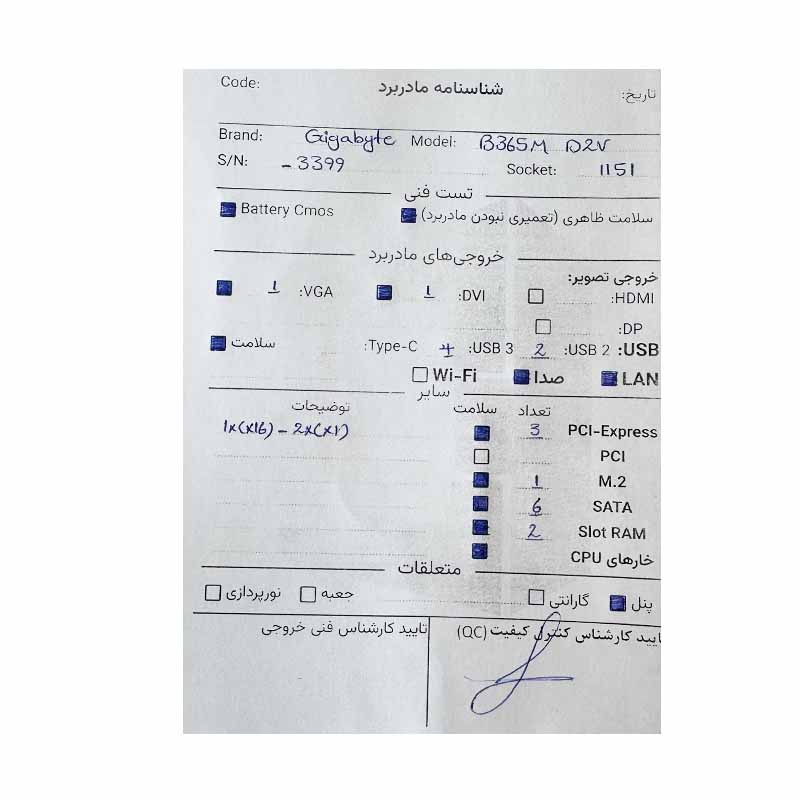 Code: شناسنامه مادربرد تاریخ:
Brand: Gigabyte Model: B365M D2V
S/N: - 3399 Socket: 1151
تست فنی
سلامت ظاهری (تعمیری نبودن مادربرد) Battery Cmos
خروجی‌های مادربرد
خروجی تصویر:
HDMI: DVI: 1 VGA: 1
DP:
USB: USB 2: 2 USB 3: 4 Type-C: سلامت
LAN صدا Wi-Fi
سایر
تعداد سلامت توضیحات
PCI-Express 3 1x(x16) - 2x(x1)
PCI
M.2 1
SATA 6
Slot RAM 2
خارهای CPU
متعلقات
پنل گارانتی جعبه نورپردازی
تایید کارشناس کنترل کیفیت (QC) تایید کارشناس فنی خروجی